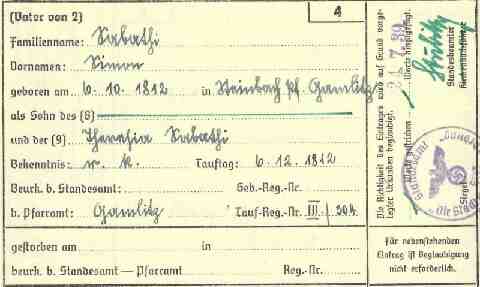 (Vater von 2)
4
Familienname: Sabathi
Vornamen: Simon
geboren am 6.10.1812 in Steinbach Pf. Gamlitz
als Sohn des (8)
und der (9) Theresia Sabathi
Bekenntnis: r. k. Tauftag: 6.12.1812
Beurk. b. Standesamt: Geb.-Reg.-Nr.
b. Pfarramt: Gamlitz Tauf-Reg.-Nr. III/304
gestorben am in
beurk. b. Standesamt — Pfarramt Reg.-Nr.
Die Richtigkeit des Eintrages wird auf Grund vorge-
legter Urkunden beglaubigt.
Worte gestrichen
Worte hinzugefügt.
Standesbeamter
Kirchenbuchführer
Für nebenstehenden
Eintrag ist Beglaubigung
nicht erforderlich.